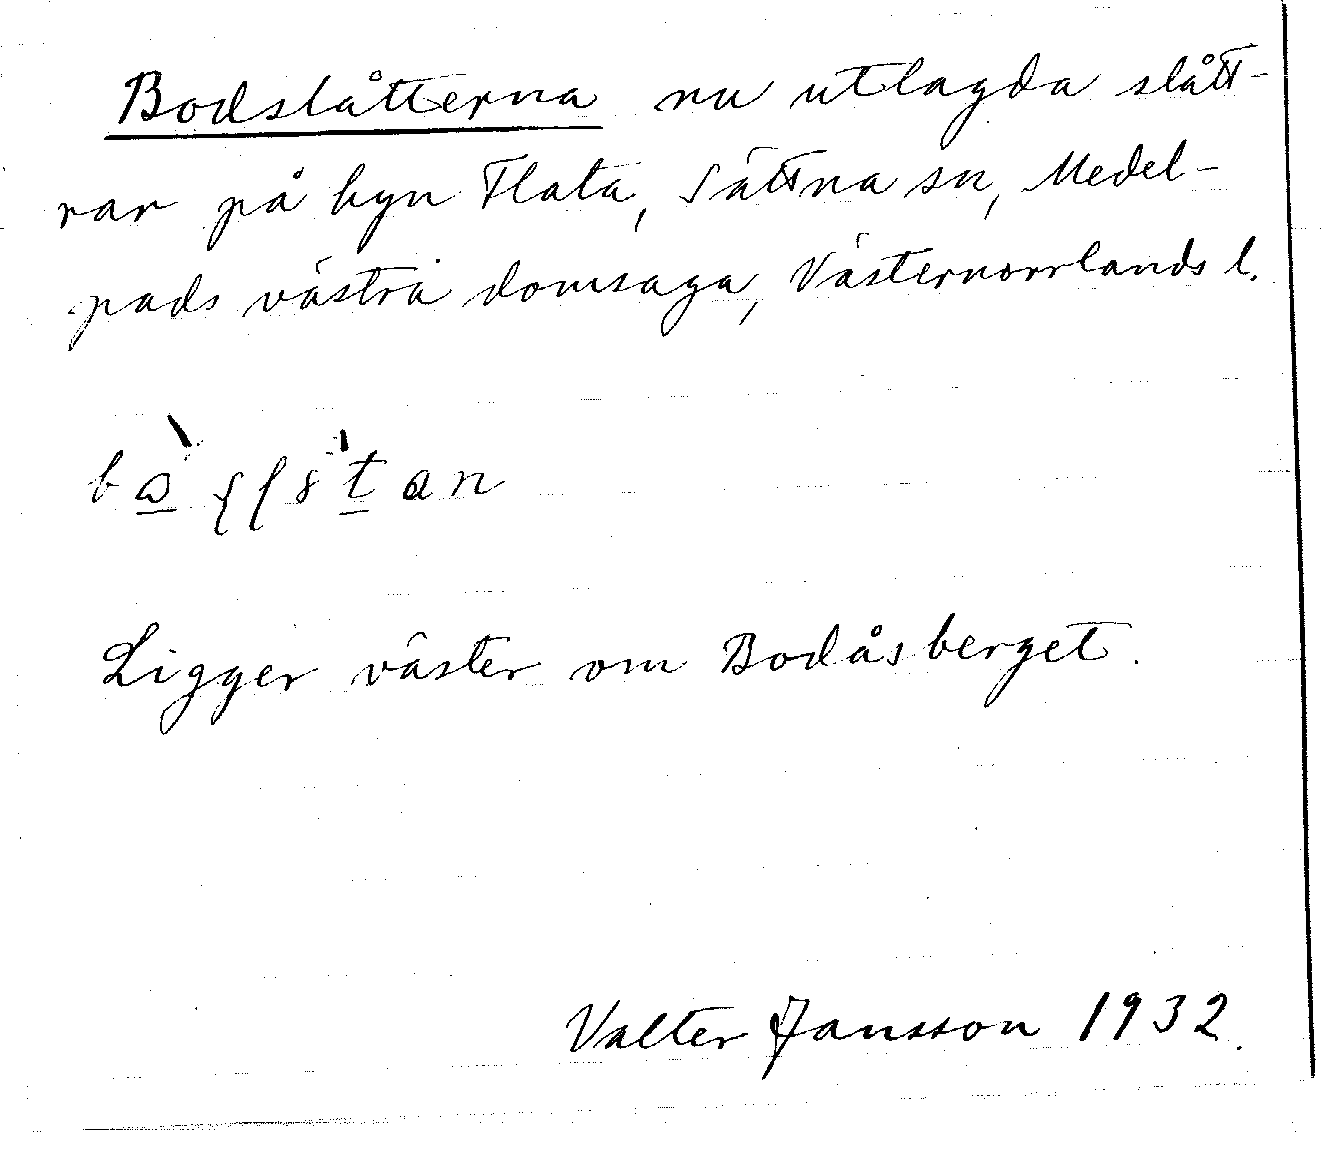 Bodslåtterna nu utlagda slått-
rar på byn Flata, Sättna sn, Medel-
pads västra domsaga, Västernorrlands l.
Ligger väster om Bodåsberget.
Valter Jansson 1932.